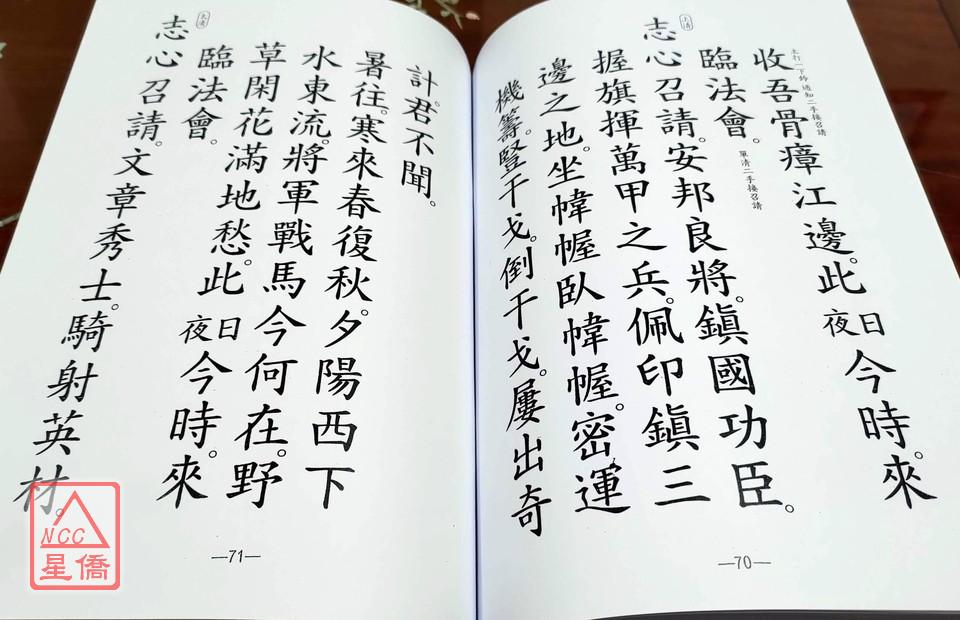 收吾骨瘴江邊。此夜日今時。來
上打一下鈴通知二手接召請
臨法會。單清二手接召請
上清
志心召請。安邦良將。鎮國功臣。
握旗揮萬甲之兵。佩印鎮三
邊之地。坐幃幄臥幃幄。密運
機籌。豎干戈。倒干戈。屢出奇
—70—
計。君不聞。
暑往。寒來春復秋。夕陽西下
水東流。將軍戰馬今何在。野
草閑花滿地愁。此夜日今時。來
臨法會。
志心召請。文章秀士。騎射英材。
—71—
NCC
星僑